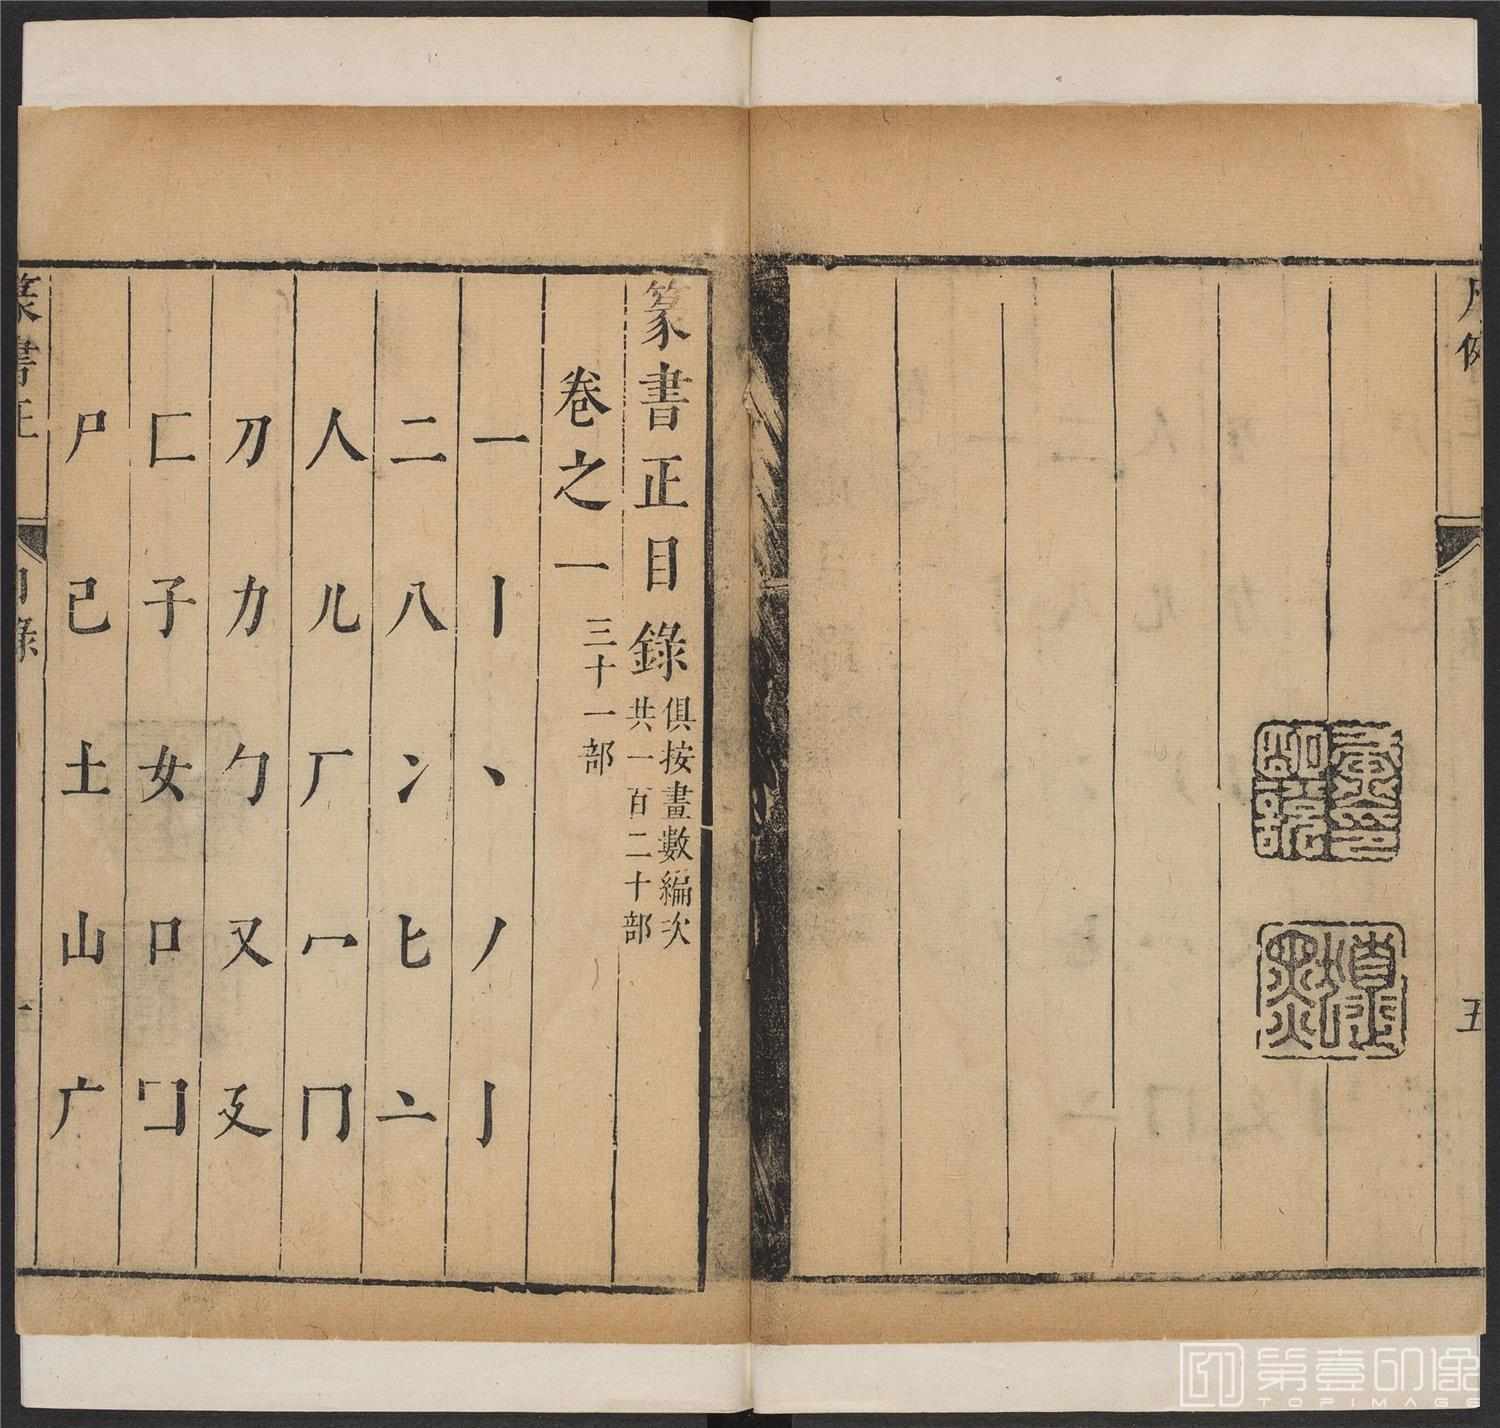 凡例
五
篆書正目錄 俱按畫數編次
共一百二十部
卷之一 三十一部
一 丨 丶 丿 亅
二 八 冫 匕 亠
人 儿 厂 冖 冂
刀 力 勹 又 廴
匚 子 女 口 囗
尸 己 土 山 广
篆書正
目錄
一
第壹印像
TOPIMAGE